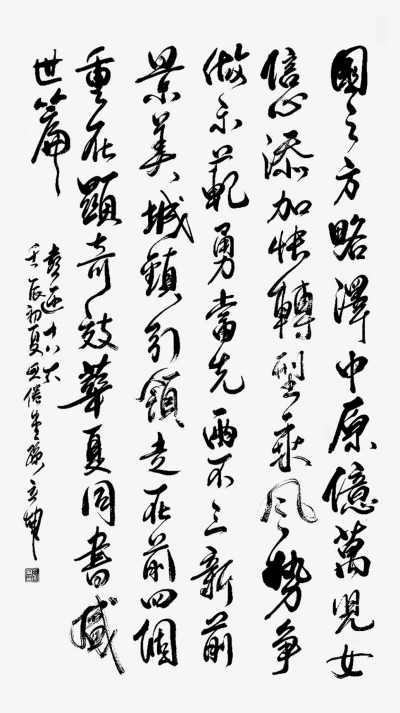 國之方略澤中原億萬兒女
信心添加快轉型乘風勢爭
做示範勇當先兩不三新前
景美城鎮引領走在前四個
重在顯奇效華夏同書盛
世篇
喜迎十八大
壬辰初夏